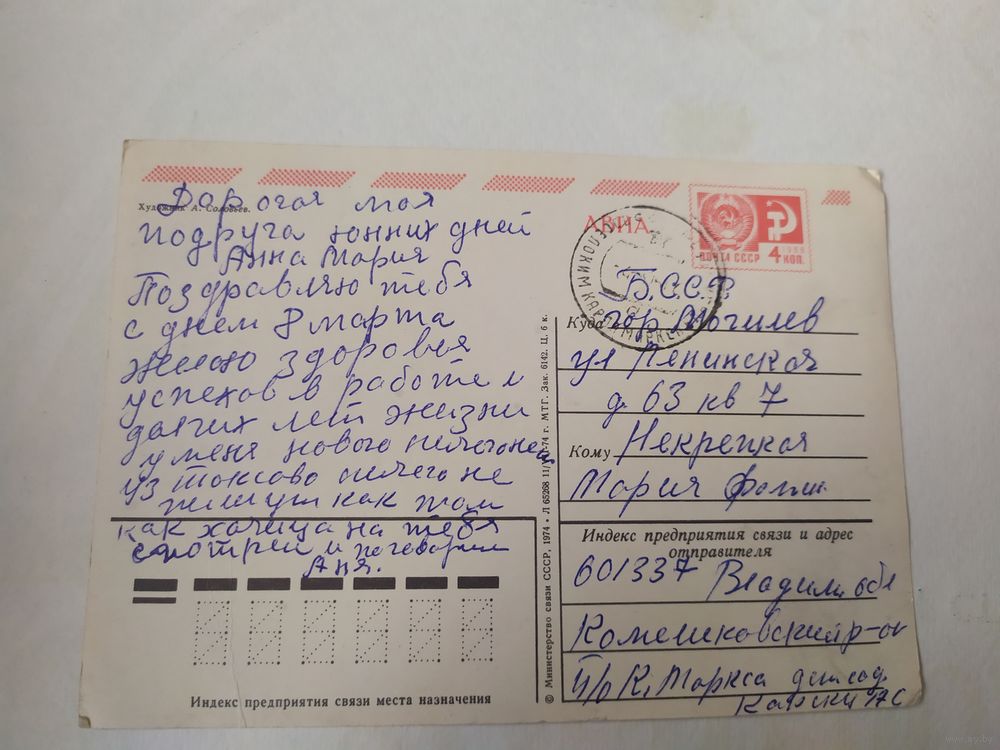 Художник А. Соловьев.
Дорогая моя
подруга юнних дней
Анна Мария
Поздравляю тебя
с днем 8 марта
желаю здоровья
успехов в работе и
долгих лет жизни
у меня нового ничего нет
из Токсово ничего не
пишут как там
как хочица на тебя
смотреи и поговорит
Аня.
Индекс предприятия связи места назначения
© Министерство связи СССР, 1974 • Л 65268 74 г. МТГ. Зак. 6142. Ц. 6 к.
АВИА
ПОЧТА СССР
4 КОП.
Б.С.С.Р
Куда гор Могилев
ул Ленинская
д. 63 кв 7
Кому Некрепкая
Мария
Индекс предприятия связи и адрес
отправителя
601337 Владим. обл
Камешковский р-он
П/о К. Маркса дет сад